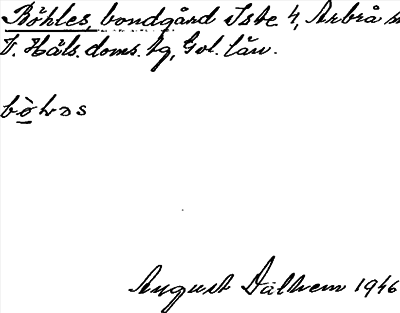 Böhles, bondgård Iste 4, Arbrå s
V. Häls. doms. tg, Gvl. län.
bò̱ləs
August Dalhem 1946